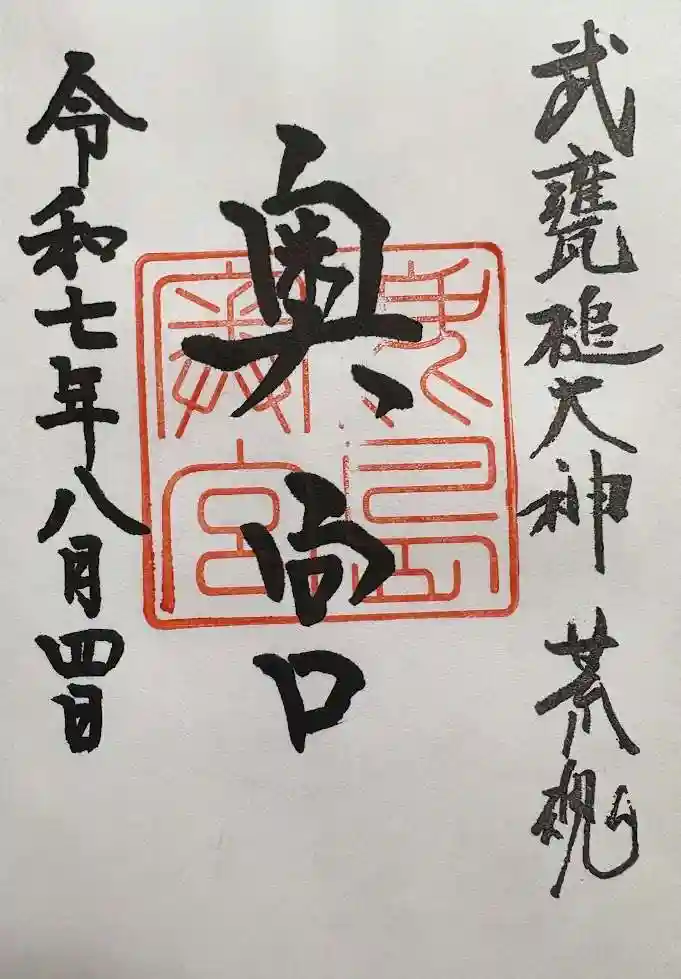 武甕槌大神 荒魂
奥宮
鹿島
奥宮
令和七年八月四日